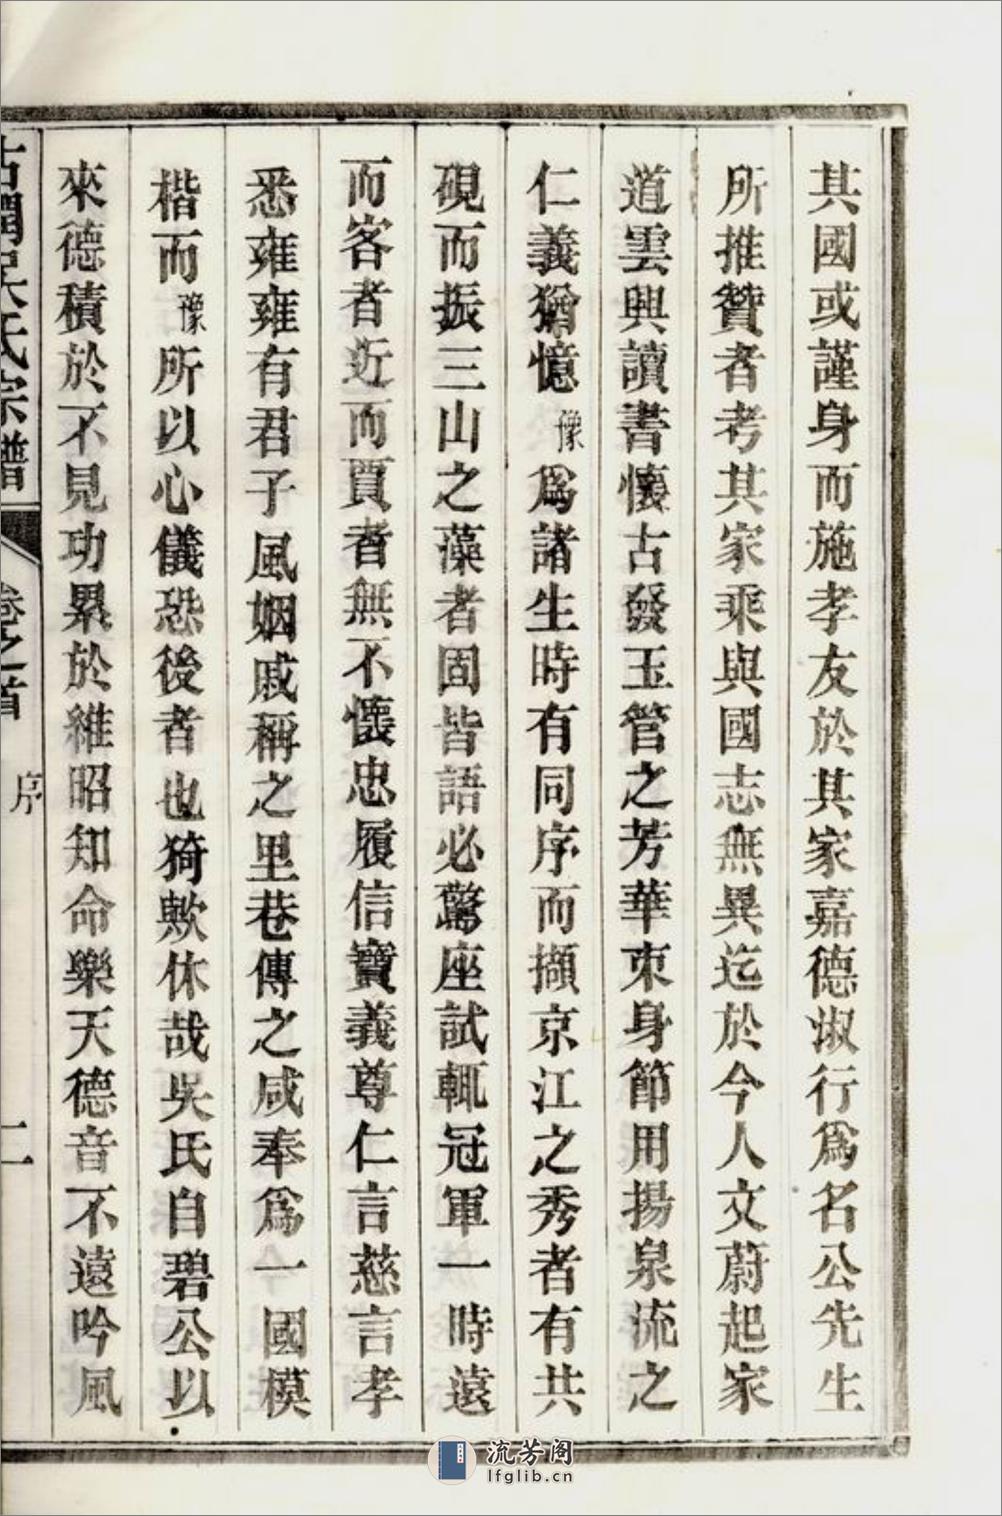 其國或謹身而施孝友於其家嘉德淑行爲名公先生
所推贊者考其家乘與國志無異迄於今人文蔚起家
道雲興讀書懷古發玉管之芳華束身節用揚泉流之
仁義猶憶豫爲諸生時有同序而擷京江之秀者有共
硯而振三山之藻者固皆語必驚座試輒冠軍一時遠
而客者近而賈者無不懷忠履信寶義尊仁言慈言孝
悉雍雍有君子風姻戚稱之里巷傳之咸奉爲一國模
楷而豫所以心儀恐後者也猗歟休哉吳氏自碧公以
來德積於不見功累於維昭知命樂天德音不遠吟風
古潤吳氏宗譜 卷之首 序 二
流芳阁
lfglib.cn